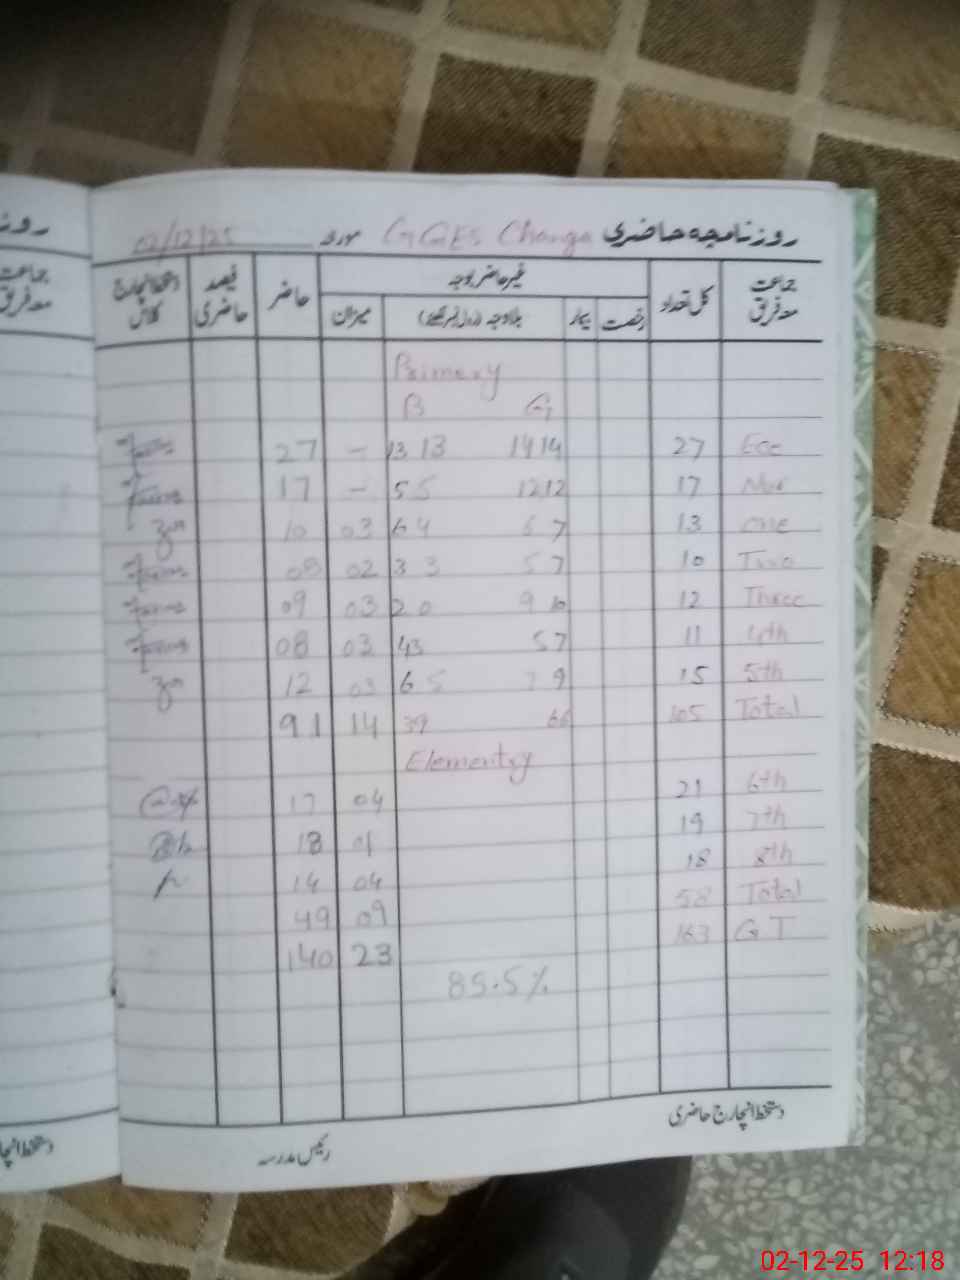 روزنامچہ حاضری GGES Changa مورخہ 02/12/25
جماعت معہ فریق کل تعداد غیر حاضر بوجہ حاضر فیصد حاضری دستخط انچارج کلاس
رخصت بیمار بلاوجہ (رول نمبر لکھئے) میزان
Primary
B G
Ece 27 13 13 14 14 – 27
Nur 17 5 5 12 12 – 17
one 13 6 4 6 7 03 10
Two 10 3 3 5 7 02 08
Three 12 2 0 9 10 03 09
4th 11 4 3 5 7 03 08
5th 15 6 5 7 9 03 12
Total 105 39 66 14 91
Elementry
6th 21 04 17
7th 19 01 18
8th 18 04 14
Total 58 09 49
GT 163 23 140
85.5%
دستخط انچارج حاضری
رئیس مدرسہ
02-12-25 12:18